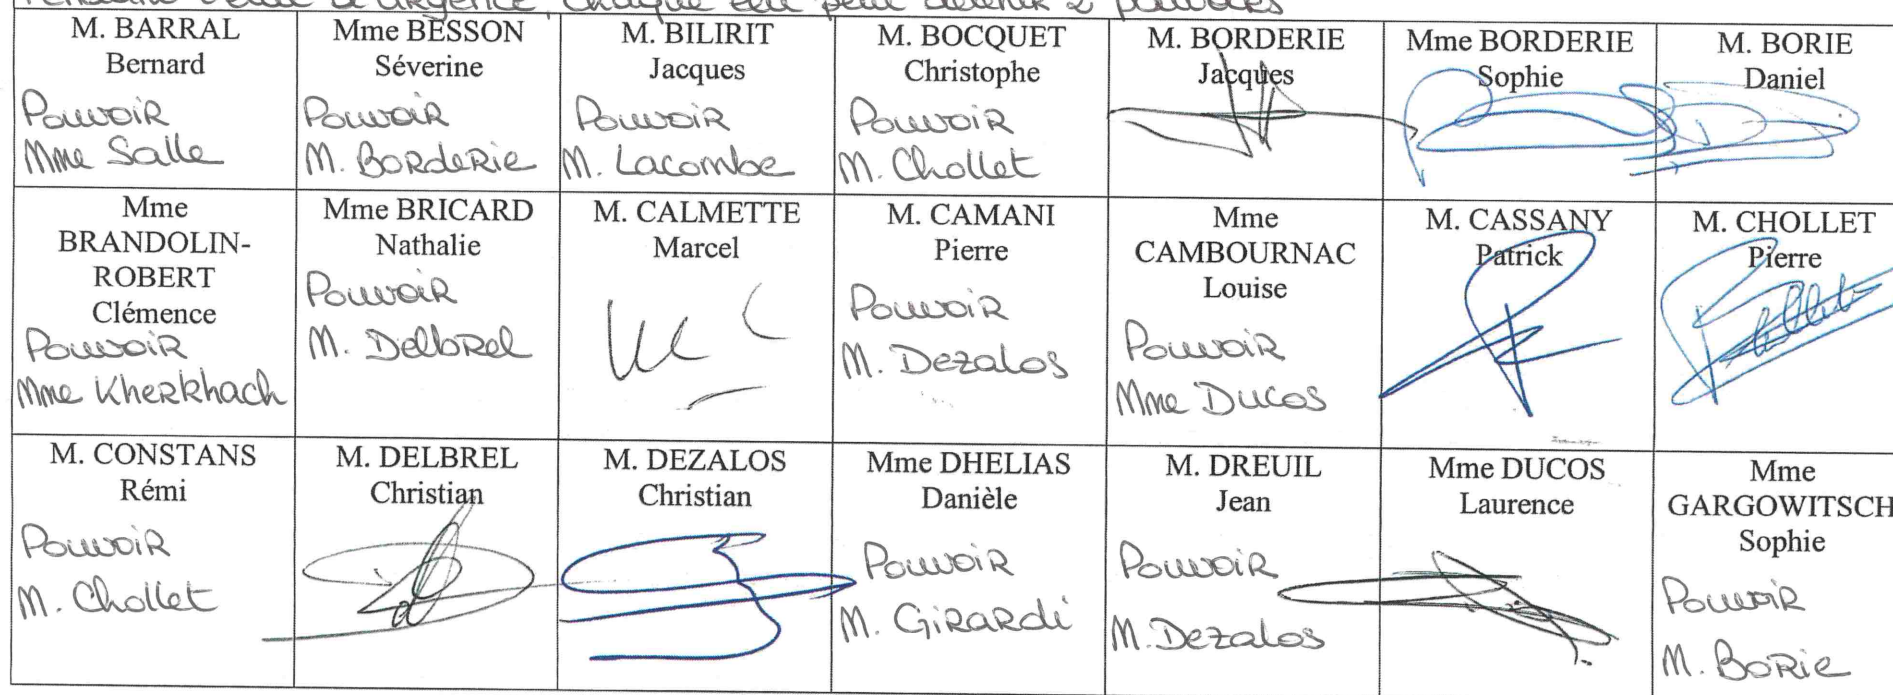 Pendant l'état d'urgence, chaque élu peut détenir 2 pouvoirs
M. BARRAL
Bernard
Pouvoir
Mme Salle
Mme BESSON
Séverine
Pouvoir
M. Borderie
M. BILIRIT
Jacques
Pouvoir
M. Lacombe
M. BOCQUET
Christophe
Pouvoir
M. Chollet
M. BORDERIE
Jacques
Mme BORDERIE
Sophie
M. BORIE
Daniel
Mme
BRANDOLIN-
ROBERT
Clémence
Pouvoir
Mme Kherkhach
Mme BRICARD
Nathalie
Pouvoir
M. Delbrel
M. CALMETTE
Marcel
M. CAMANI
Pierre
Pouvoir
M. Dezalos
Mme
CAMBOURNAC
Louise
Pouvoir
Mme Ducos
M. CASSANY
Patrick
M. CHOLLET
Pierre
M. CONSTANS
Rémi
Pouvoir
M. Chollet
M. DELBREL
Christian
M. DEZALOS
Christian
Mme DHELIAS
Danièle
Pouvoir
M. Girardi
M. DREUIL
Jean
Pouvoir
M. Dezalos
Mme DUCOS
Laurence
Mme
GARGOWITSCH
Sophie
Pouvoir
M. Borie